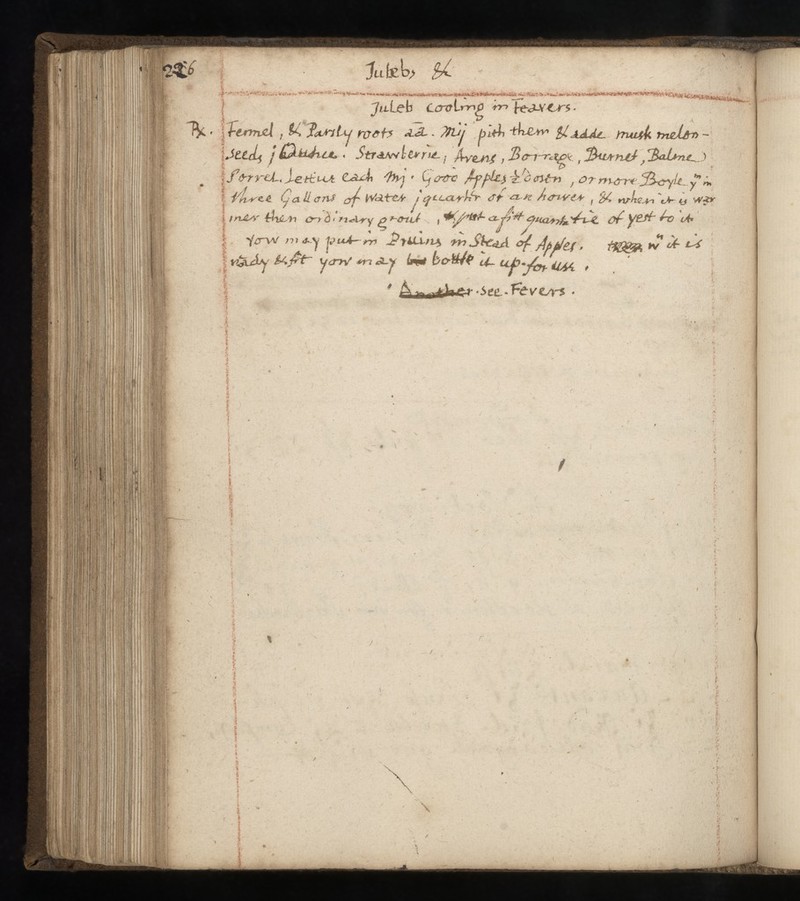 226
Juleb, &
Juleb cooling in Feavers.
℞. Fennel, & Parsly roots aā. Mij pith them & adde musk melon-
Seeds j handfull. Strawberrie, Avens, Borrage, Burnet, Balme
Sorrel. Lettus each Mj. Good Apples ½ dosen, or more Boyle yᵐ in
three Gallons of water j quarter of an hower, & when it is war
mer then ordinary grout, put a fitt quantitie of yest to it
Yow may put in Pruins in Stead of Apples. wⁿ it is
ready & fit yow may bottle it up for use.
Another see Fevers.